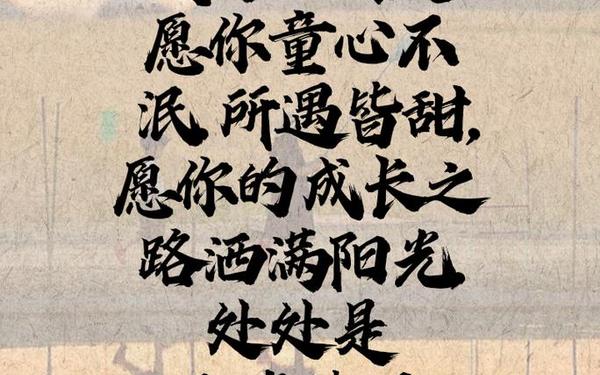 愿你童心不
泯,所遇皆甜,
愿你的成长之
路洒满阳光
处处是